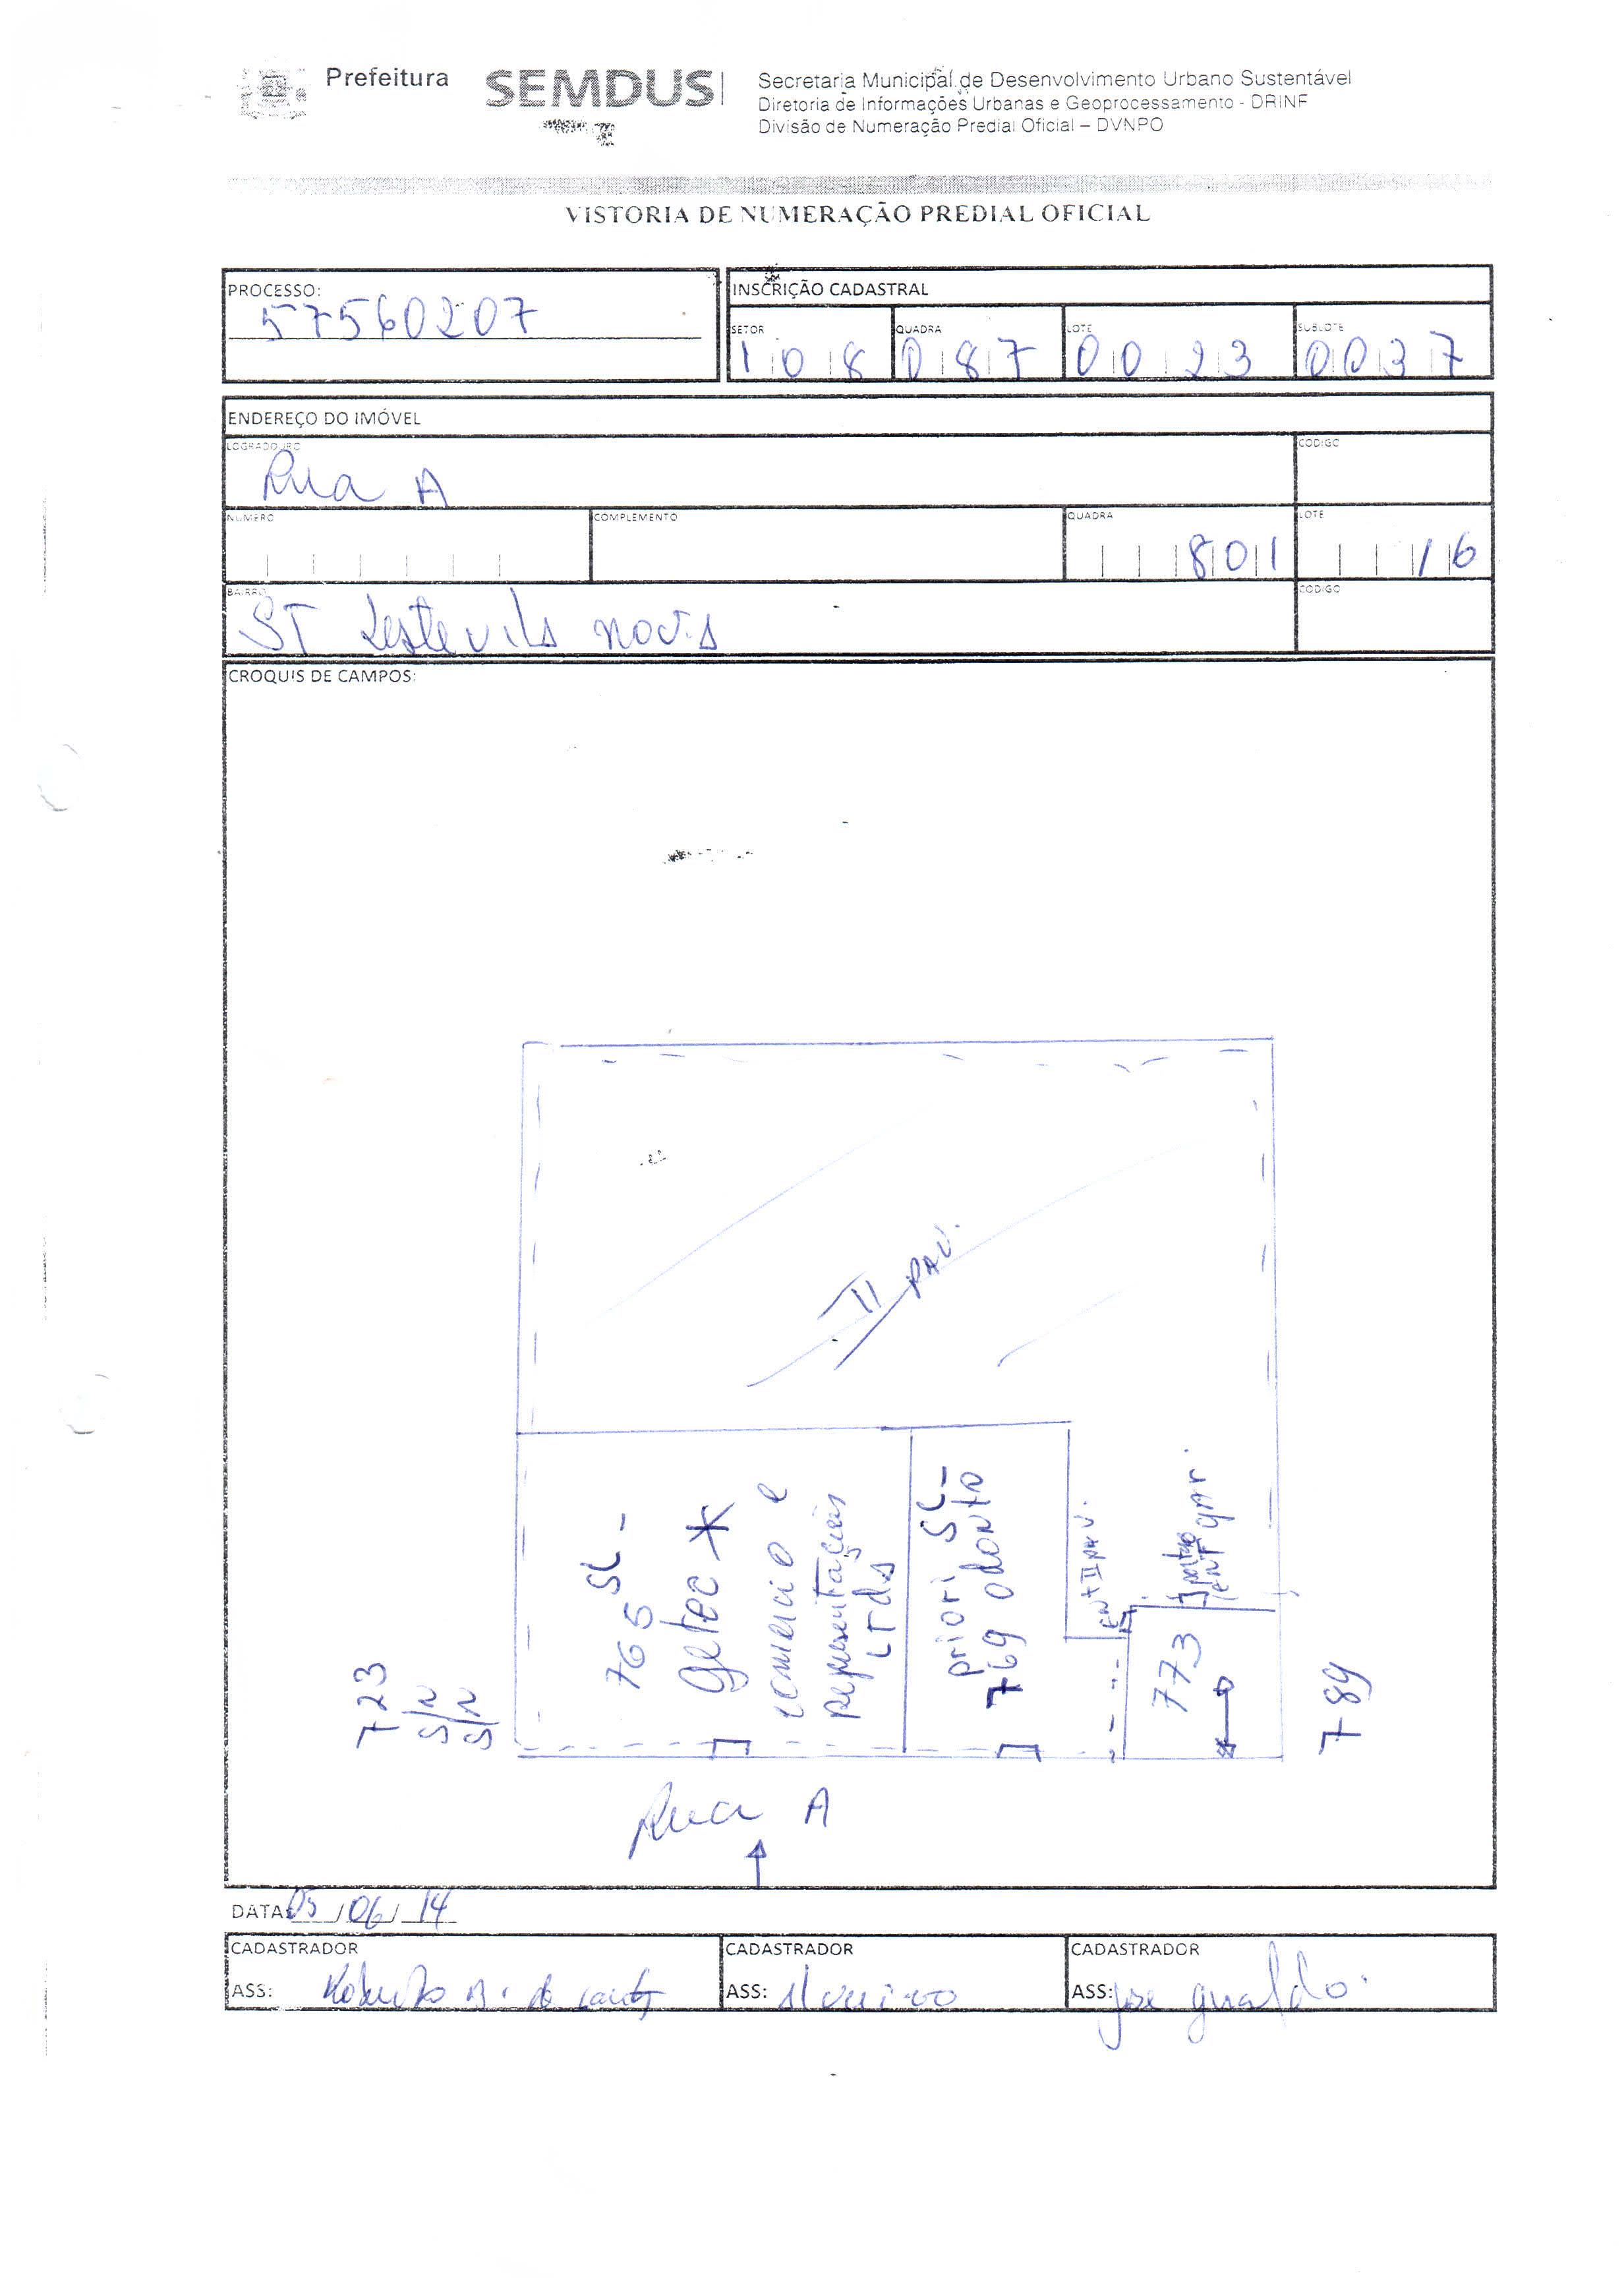 Prefeitura
SEMDUS
Secretaria Municipal de Desenvolvimento Urbano Sustentável
Diretoria de Informações Urbanas e Geoprocessamento - DRINF
Divisão de Numeração Predial Oficial – DVNPO
VISTORIA DE NUMERAÇÃO PREDIAL OFICIAL
PROCESSO:
57560207
INSCRIÇÃO CADASTRAL
SETOR QUADRA LOTE SUBLOTE
108 087 0023 0037
ENDEREÇO DO IMÓVEL
LOGRADOURO CODIGO
Rua A
NUMERO COMPLEMENTO QUADRA LOTE
801 16
BAIRRO CODIGO
ST Leste vila nova
CROQUIS DE CAMPOS:
II PAV.
723
S/N
S/N
765 SL-
getec *
comercio e
representações
LTDA
priori SL-
769 odonto
ENT II PAV.
portão
ENT gar.
773
789
Rua A
DATA: 05/06/14
CADASTRADOR CADASTRADOR CADASTRADOR
ASS: Roberto B. ASS: ASS: jose